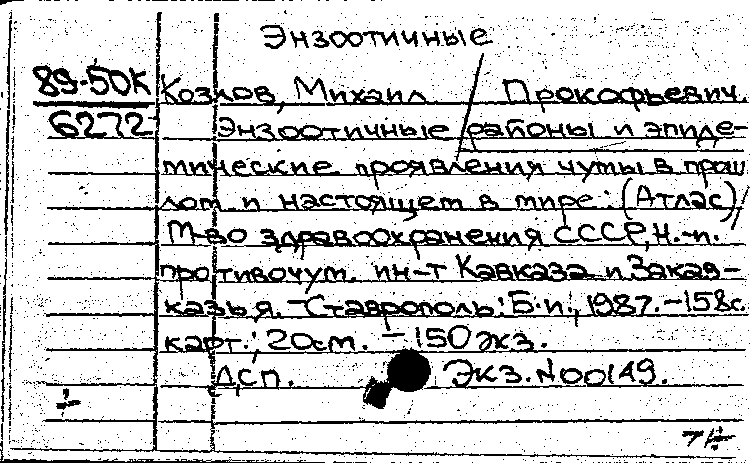 Энзоотичные
89-50К Козлов, Михаил Прокофьевич.
6272 Энзоотичные районы и эпиде-
мические проявления чумы в прош
лом и настоящем в мире: (Атлас) /
М-во здравоохранения СССР, Н.-и.
противочум. ин-т Кавказа и Закав-
казья. - Ставрополь: Б.и., 1987. - 158с.
карт.; 20см. - 150 экз.
ДСП. Экз. N00149.